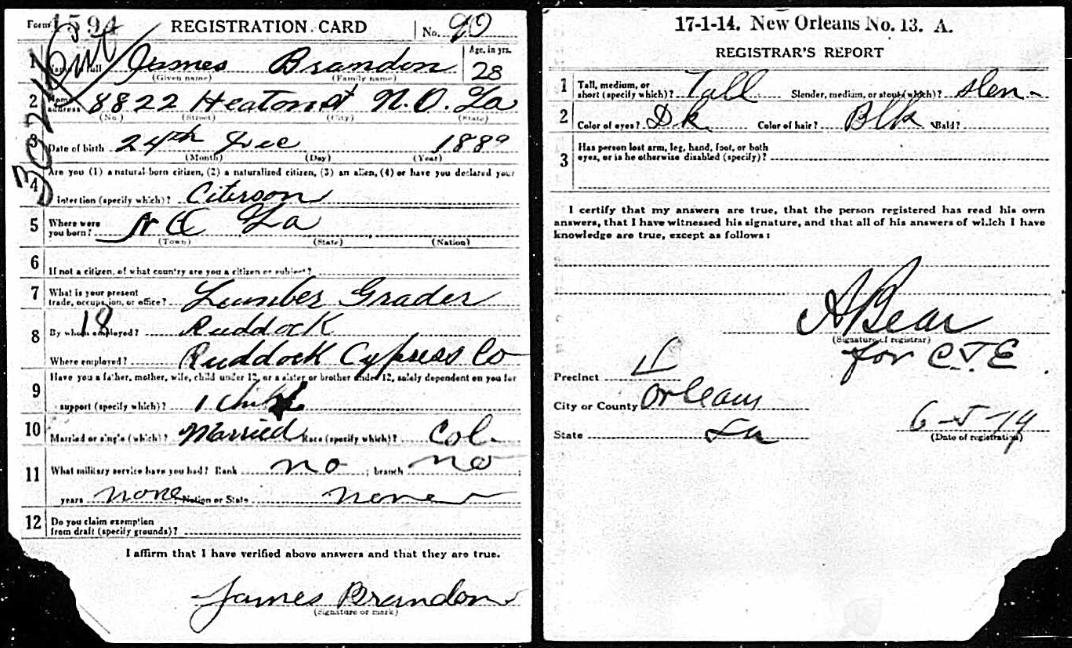 Form 1 594 REGISTRATION CARD No. 90
Age, in yrs.
James Brandon 28
(Given name) (Family name)
2 Home address 8822 Heaton st N.O. La
(No.) (Street) (City) (State)
3 Date of birth 24th Dec 1889
(Month) (Day) (Year)
Are you (1) a natural-born citizen, (2) a naturalized citizen, (3) an alien, (4) or have you declared your
4 intention (specify which)? Citerson
5 Where were you born? N O La
(Town) (State) (Nation)
6 If not a citizen, of what country are you a citizen or subject?
7 What is your present trade, occupation, or office? Lumber Grader
18
8 By whom employed? Ruddock
Where employed? Ruddock Cypress Co
9 Have you a father, mother, wife, child under 12, or a sister or brother under 12, solely dependent on you for
support (specify which)? 1 child
10 Married or single (which)? Married Race (specify which)? Col.
11 What military service have you had? Rank no ; branch no
years none Nation or State none
12 Do you claim exemption from draft (specify grounds)?
I affirm that I have verified above answers and that they are true.
James Brandon
(Signature or mark)
17-1-14. New Orleans No. 13. A.
REGISTRAR'S REPORT
1 Tall, medium, or short (specify which)? Tall Slender, medium, or stout (which)? slen-
2 Color of eyes? Dk Color of hair? Blk Bald?
3 Has person lost arm, leg, hand, foot, or both eyes, or is he otherwise disabled (specify)?
I certify that my answers are true, that the person registered has read his own
answers, that I have witnessed his signature, and that all of his answers of which I have
knowledge are true, except as follows:
A Bear
(Signature of registrar)
for C.T.E.
Precinct
City or County Orleans
State La
6-5-17
(Date of registration)